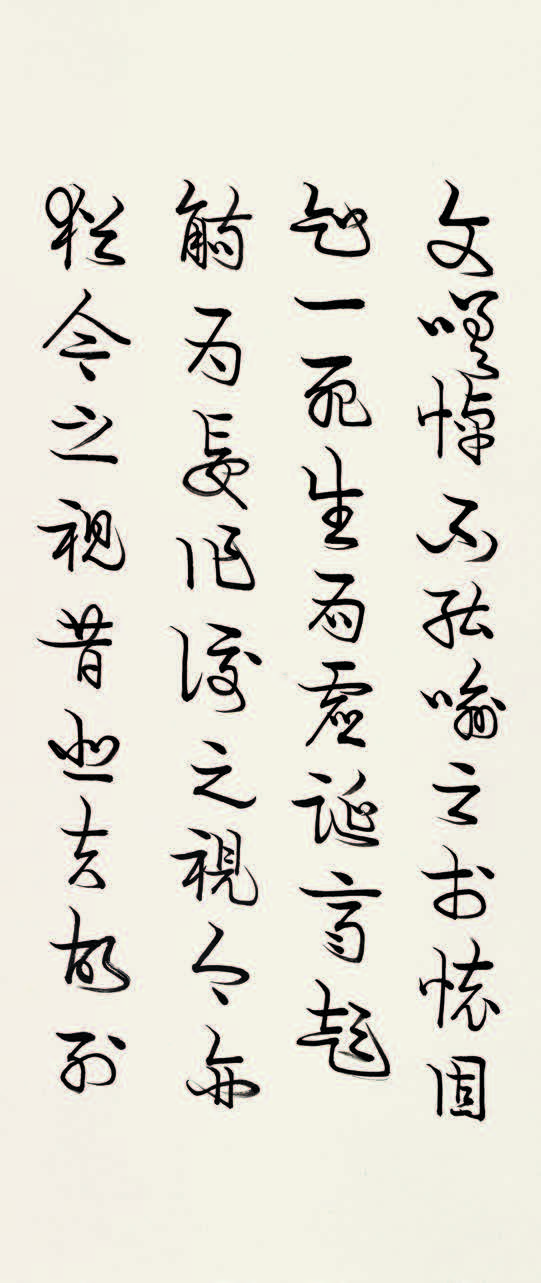 文嗟悼不能喻之於懷固
知一死生為虛誕齊彭
殤為妄作後之視今亦
猶今之視昔悲夫故列